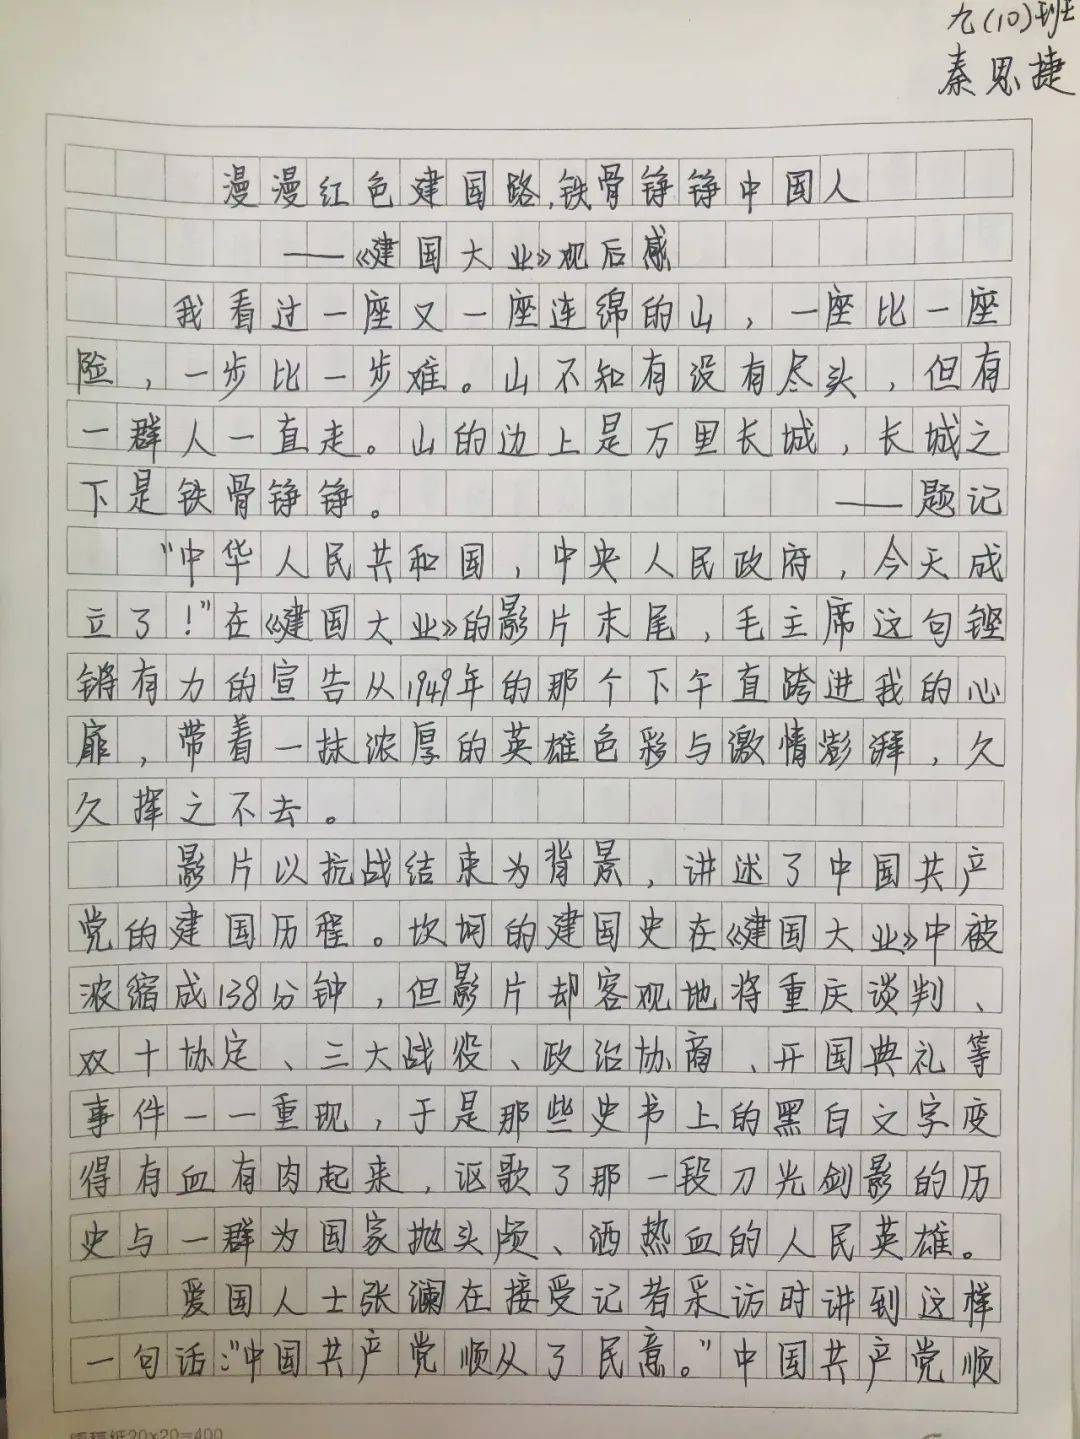 九(10)班
秦思捷
漫漫红色建国路,铁骨铮铮中国人
——《建国大业》观后感
我看过一座又一座连绵的山，一座比一座
险，一步比一步难。山不知有没有尽头，但有
一群人一直走。山的边上是万里长城，长城之
下是铁骨铮铮。 ——题记
“中华人民共和国，中央人民政府，今天成
立了！”在《建国大业》的影片末尾，毛主席这句铿
锵有力的宣告从1949年的那个下午直跨进我的心
扉，带着一抹浓厚的英雄色彩与激情澎湃，久
久挥之不去。
影片以抗战结束为背景，讲述了中国共产
党的建国历程。坎坷的建国史在《建国大业》中被
浓缩成138分钟，但影片却客观地将重庆谈判、
双十协定、三大战役、政治协商、开国典礼等
事件一一重现，于是那些史书上的黑白文字变
得有血有肉起来，讴歌了那一段刀光剑影的历
史与一群为国家抛头颅、洒热血的人民英雄。
爱国人士张澜在接受记者采访时讲到这样
一句话：“中国共产党顺从了民意。”中国共产党顺
20×20=400